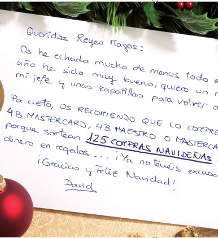 Queridos Reyes Magos:
Os he echado mucho de menos todo e
año he sido muy bueno, quiero un n
mi jefe y unas zapatillas para volver a
Por cierto, OS RECOMIENDO QUE LO COMPRE
4B MASTERCARD, 4B MAESTRO O MASTERCA
porque sortean 125 COMPRAS NAVIDEÑAS
dinero en regalos... ¡Ya no tenéis excusa
¡Gracias y Feliz Navidad!
David